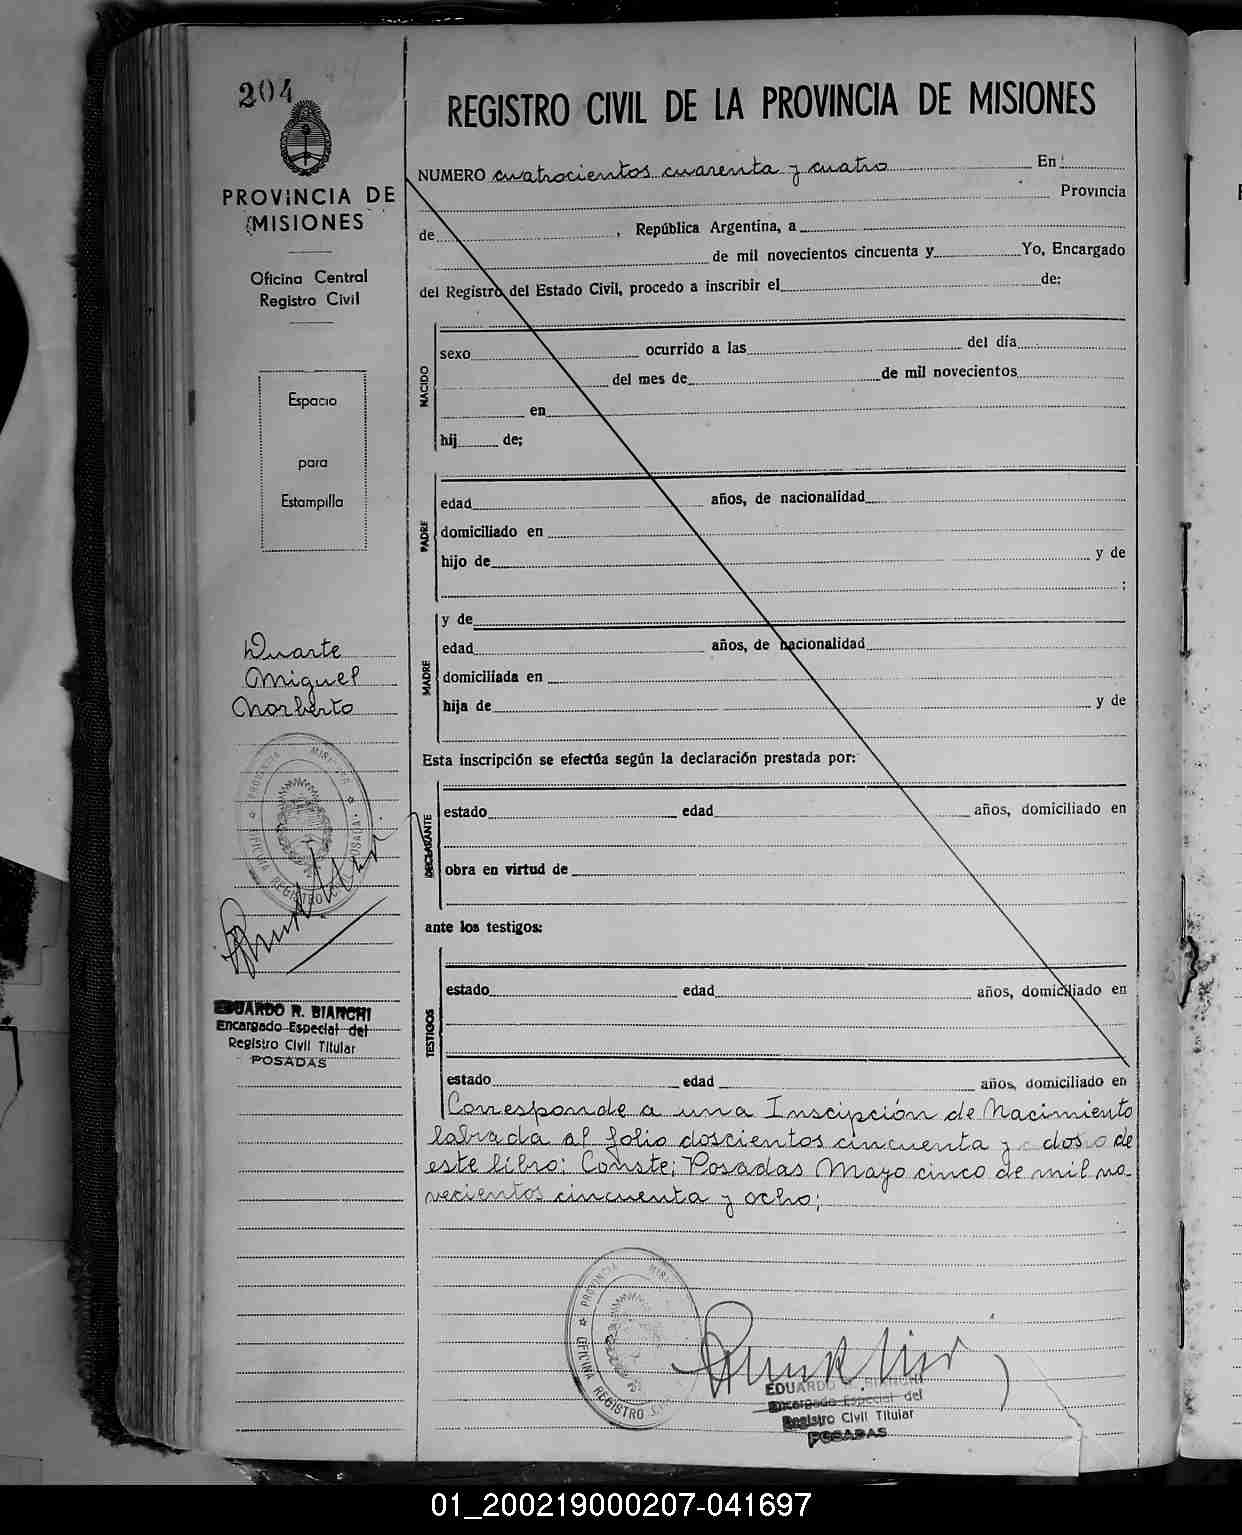 204
PROVINCIA DE
MISIONES
Oficina Central
Registro Civil
Espacio
para
Estampilla
Duarte
Miguel
Norberto
PROVINCIA MISIONES
OFICINA REGISTRO CIVIL POSADAS
EDUARDO R. BIANCHI
Encargado Especial del
Registro Civil Titular
POSADAS
REGISTRO CIVIL DE LA PROVINCIA DE MISIONES
NUMERO cuatrocientos cuarenta y cuatro En
Provincia
de , República Argentina, a
de mil novecientos cincuenta y Yo, Encargado
del Registro del Estado Civil, procedo a inscribir el de:
NACIDO
sexo ocurrido a las del día
del mes de de mil novecientos
en
hij de;
PADRE
edad años, de nacionalidad
domiciliado en
hijo de y de
;
MADRE
y de
edad años, de nacionalidad
domiciliada en
hija de y de
Esta inscripción se efectúa según la declaración prestada por:
DECLARANTE
estado edad años, domiciliado en
obra en virtud de
ante los testigos:
TESTIGOS
estado edad años, domiciliado en
estado edad años, domiciliado en
Corresponde a una Inscipción de Nacimiento
labrada al folio doscientos cincuenta y dos de
este libro: Conste; Posadas Mayo cinco de mil no-
vecientos cincuenta y ocho;
PROVINCIA
OFICINA REGISTRO
EDUARDO R. BIANCHI
Encargado Especial del
Registro Civil Titular
POSADAS
01_200219000207-041697